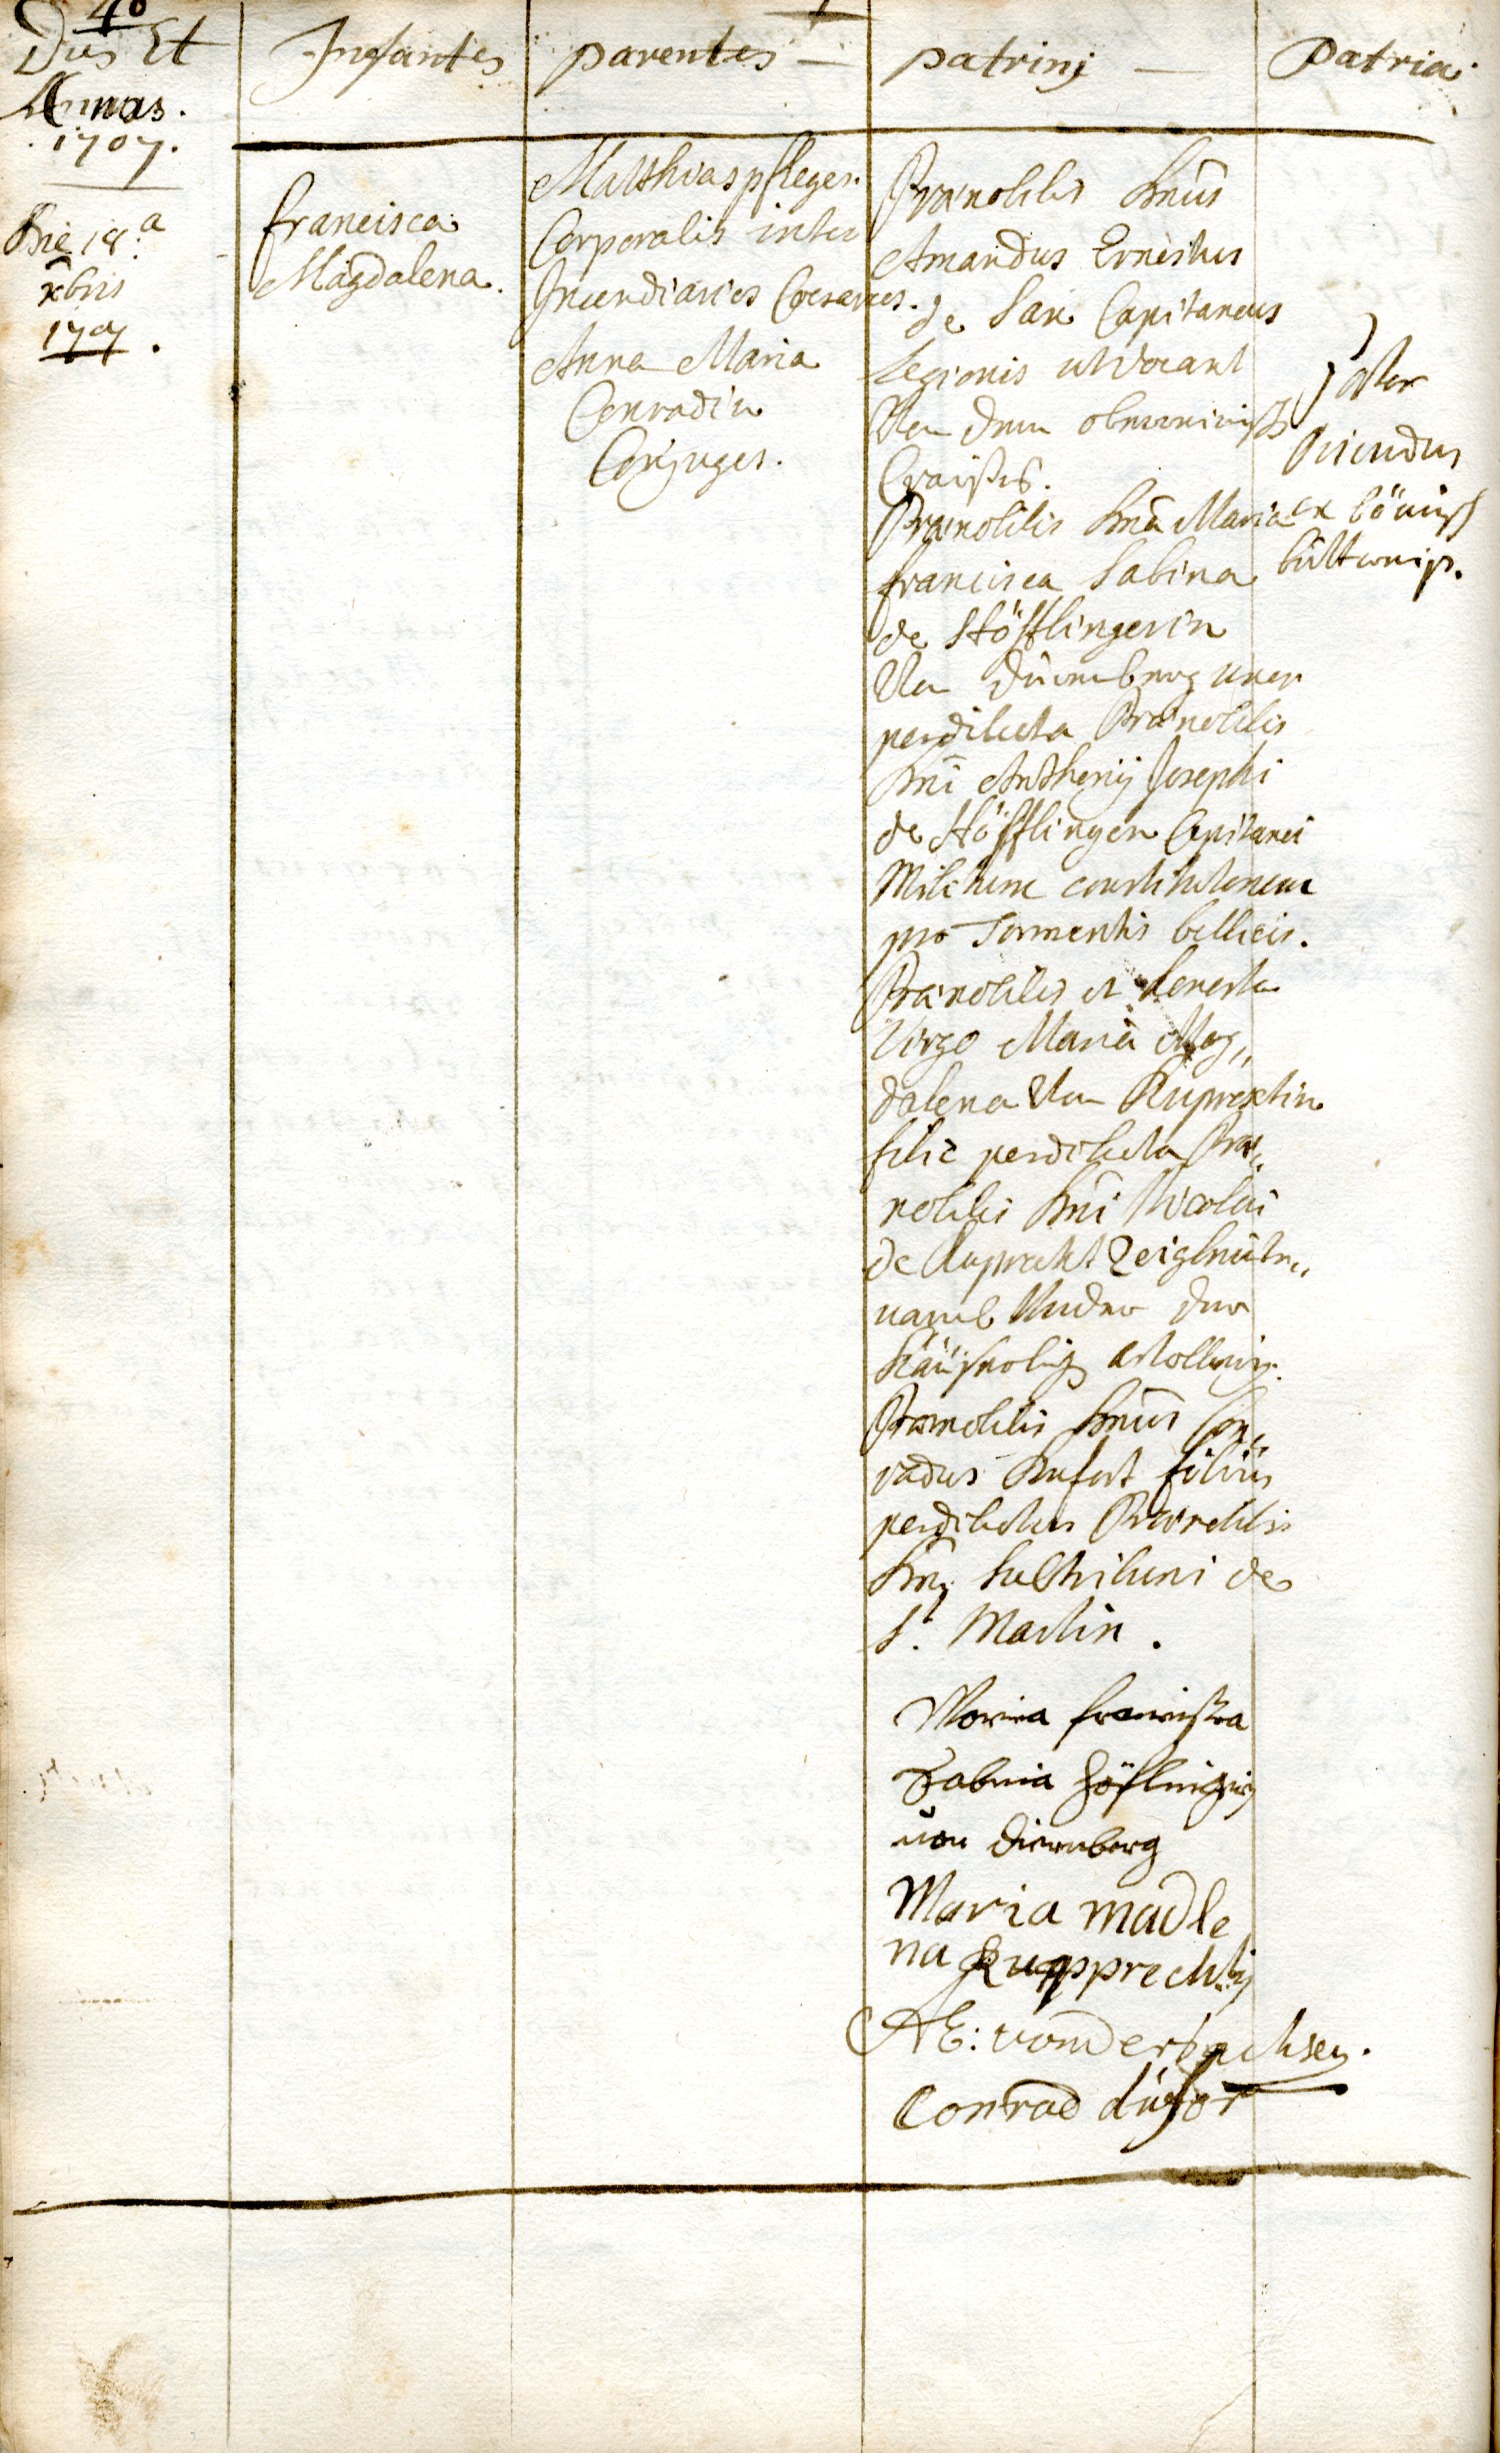 40
Dies Et
Annus.
1707.
Infantes
parentes —
patrinj —
Patria
Die 18.a
xbris
1707.
Francisca
Magdalena.
Matthias pfleger
Corporalis inter
Incendiarios Caesareos.
Anna Maria
Conradin
Conjuges.
Praenobilis Dnus
Amandus Ernestus
de Sax Capitaneus
Legionis ut vocant
Von dem
Praenobilis Dna Maria
Francisca Sabina
de Höfflingerin
Von Dürnberg uxor
perdilecta Praenobilis
Dni Anthonij Josephi
de Höfflingen Capitanei
Militum
pro Tormentis bellicis.
Praenobilis et honesta
Virgo Maria Mag„
dalena Von Ruprechtin
filia perdilecta Prae„
nobilis Dni Nicolai
de Ruprecht
Praenobilis Dnus Con„
radus Dufort filius
perdilectus Praenobilis
Dnj de
S. Martin.
Pater
Oriundus
ex
Maria Francisca
Sabina Höflingerin
von Diernberg
Maria madle
na Rupprechtij
AE: von der Sachsen.
Conrad düfor